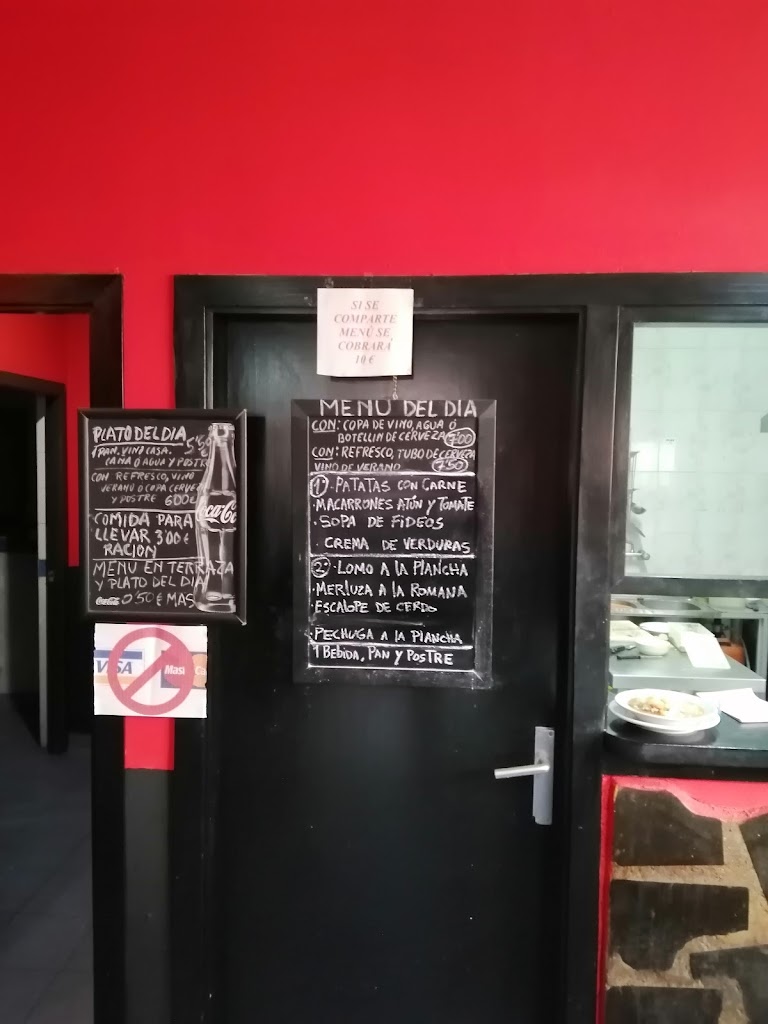 SI SE
COMPARTE
MENÚ SE
COBRARÁ
10 €
PLATO DEL DIA
5'50
1 PAN, VINO CASA,
CAÑA O AGUA Y POSTRE
CON REFRESCO, VINO
VERANO O COPA CERVEZA
Y POSTRE 6'00€
COMIDA PARA
LLEVAR 3'00€
RACION
MENU EN TERRAZA
Y PLATO DEL DIA
0'50 € MAS
Coca-Cola
Coca-Co
VISA
Mas
MENÚ DEL DIA
CON: COPA DE VINO, AGUA Ó
BOTELLIN DE CERVEZA 7'00
CON: REFRESCO, TUBO DE CERVEZA
VINO DE VERANO 7'50
1º · PATATAS CON CARNE
· MACARRONES ATÚN Y TOMATE
· SOPA DE FIDEOS
· CREMA DE VERDURAS
2º · LOMO A LA PLANCHA
· MERLUZA A LA ROMANA
· ESCALOPE DE CERDO
· PECHUGA A LA PLANCHA
1 BEBIDA, PAN Y POSTRE